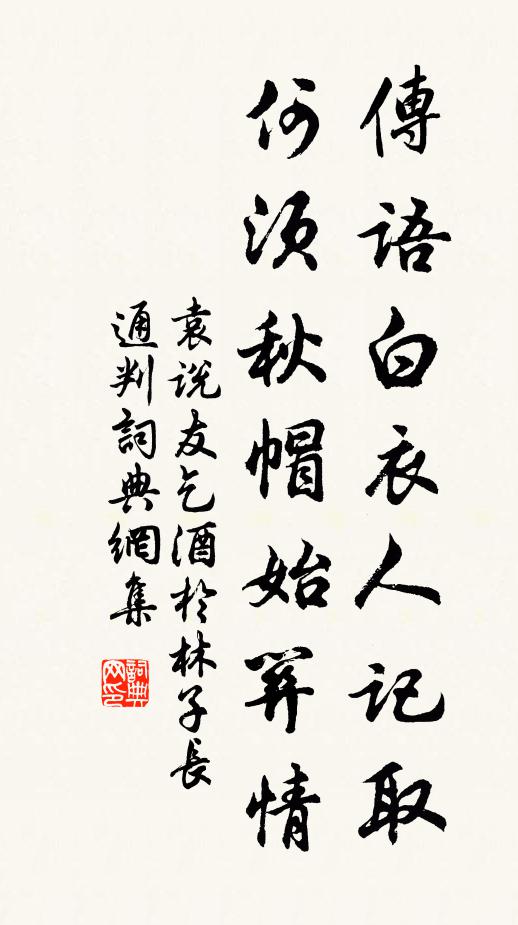 傳語白衣人記取
何須秋帽始筭情
袁說友乞酒於林子長
通判詞典網集
詞典网印